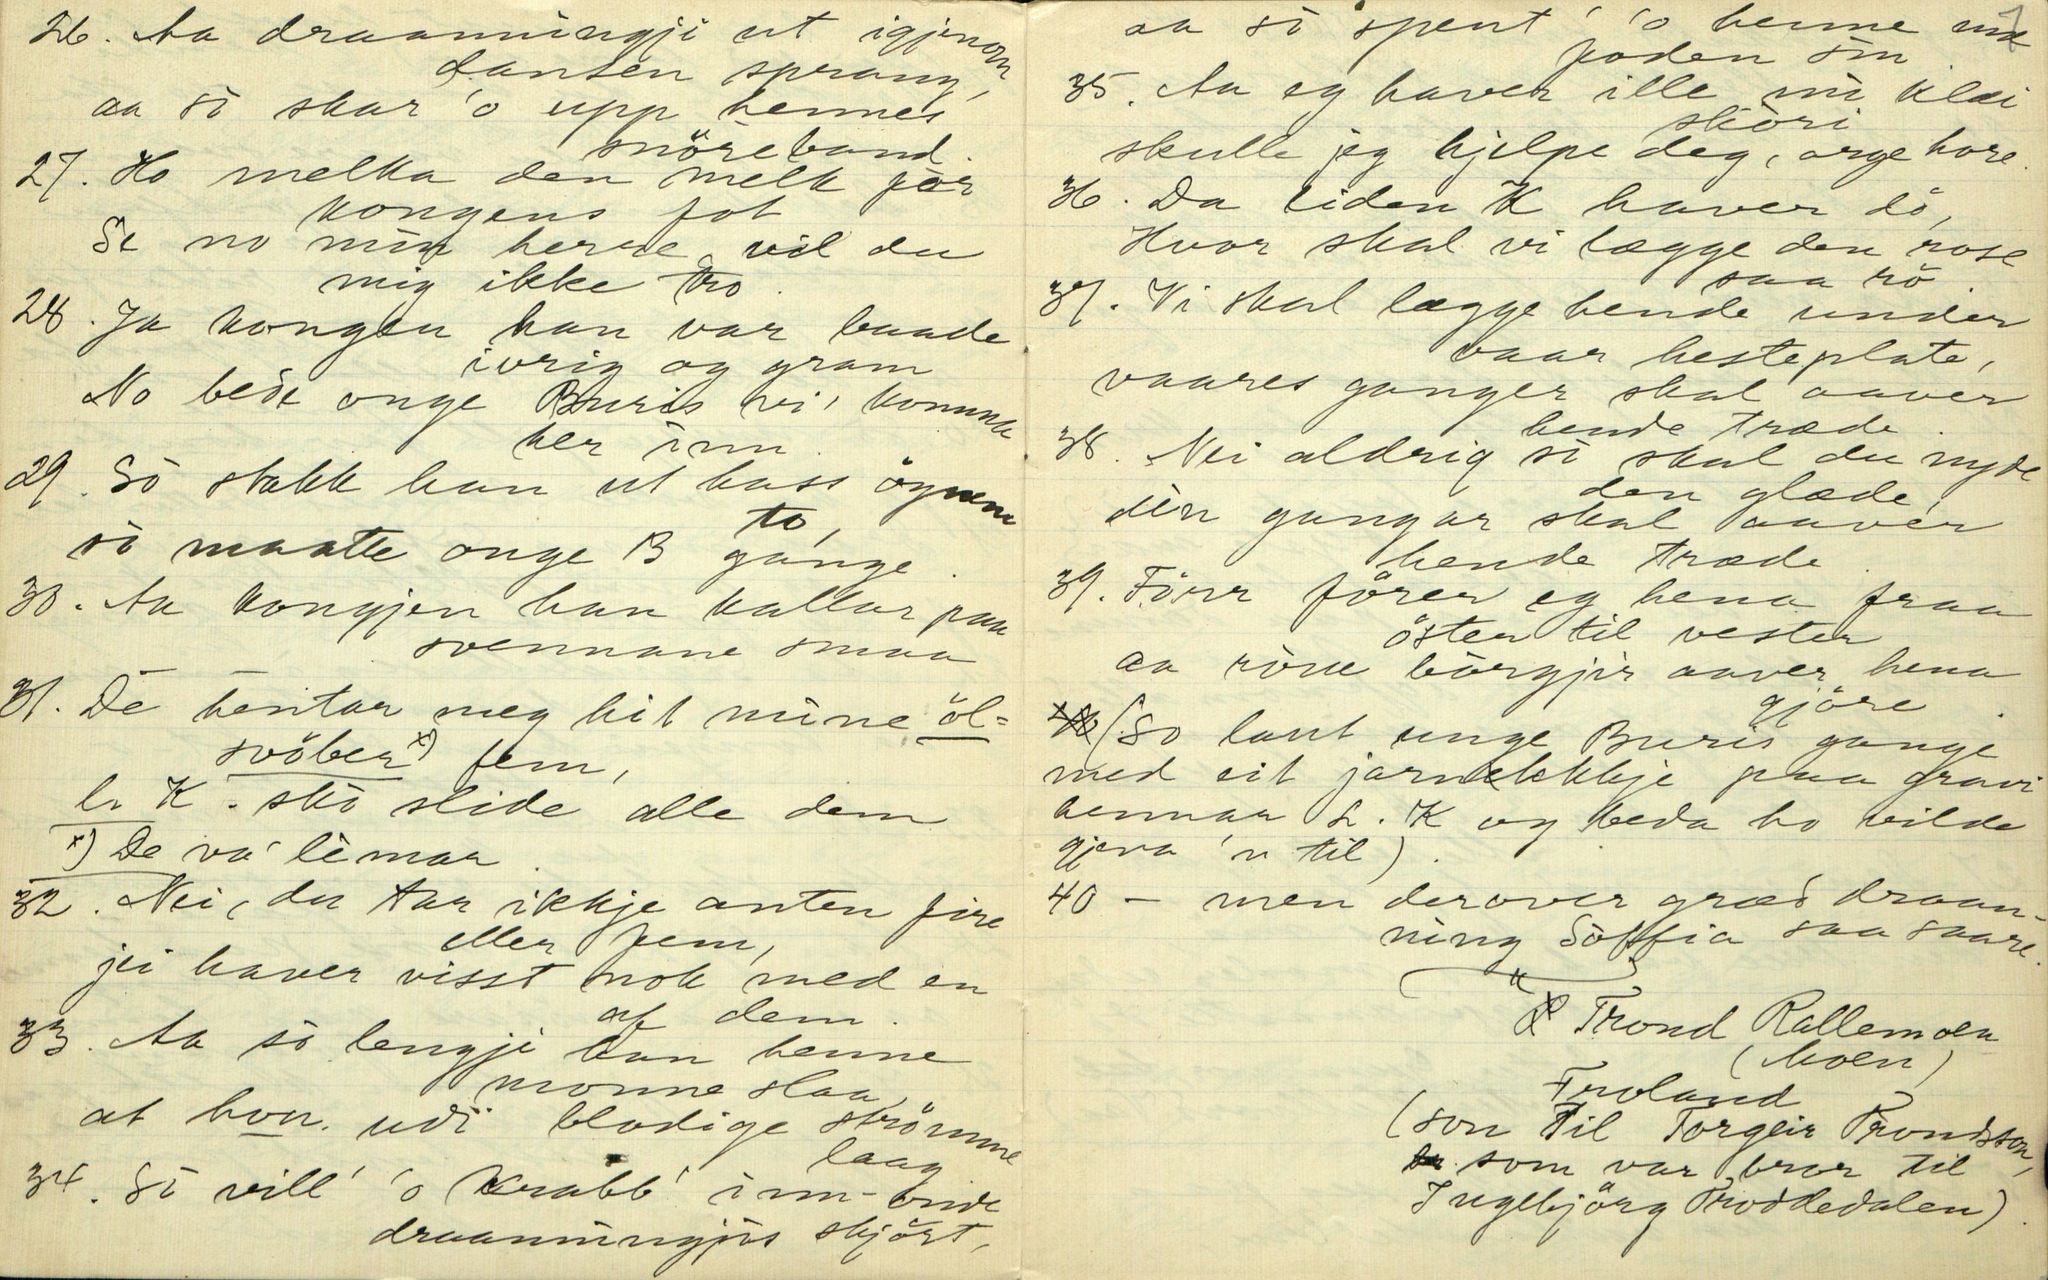 26. Aa draanningji ut igjenom
dansen sprang,
aa sò skar 'o upp hennes
snöreband.
27. Ho melka den melk för
kongens fot
Se no min herre, vil du
mig ikke tro.
28. Ja kongen han var baade
ivrig og gram
No bede onge Buris vi' komme
her inn.
29. Sò stakk han ut hass ögnene
to,
sò maatte onge B gange.
30. Aa kongjen han kallar paa
svennane smaa
31. De hentar meg hit mine öl-
svöber x) fem,
l. K. sko slide alle dem
x) De va' lìmar.
32. Nei, du tar ikkje anten fire
eller fem,
jei haver visst nok med en
af dem.
33. Aa sò lengji han henne
monne slaa,
at hon. udi blodige strömme
laag
34. Sò vill' 'o krabb' inn- onde
draanningjis skjört,
aa sò spent' 'o henne med
foden sin.
35. Aa eg haver ille mi klæi
skòri
skulle jeg hjelpe deg, arge hore.
36. Da liden K haver dö,
Hvor skal vi lægge den rose
saa rö
37. Vi skal lægge hende under
vaar hesteplate,
vaares ganger skal aaver
hende træde.
38. Nei aldrig sò skal du nyde
den glæde,
din gangar skal aaver
hende træde.
39. Förr förer eg hena fraa
öster til vester
aa röne börgjir aaver hena
gjöre.
(So laut unge Buris gange
med eit jarnlekkje paa gravi
hennar L. K og beda ho vilde
gjeva 'n til).
40 — men derover græd draan-
ning Söffia saa saare.
Trond Rallemoen
(Moen)
Froland
(son til Torgeir Trondsson,
som var bror til
Ingebjörg Troddedalen).